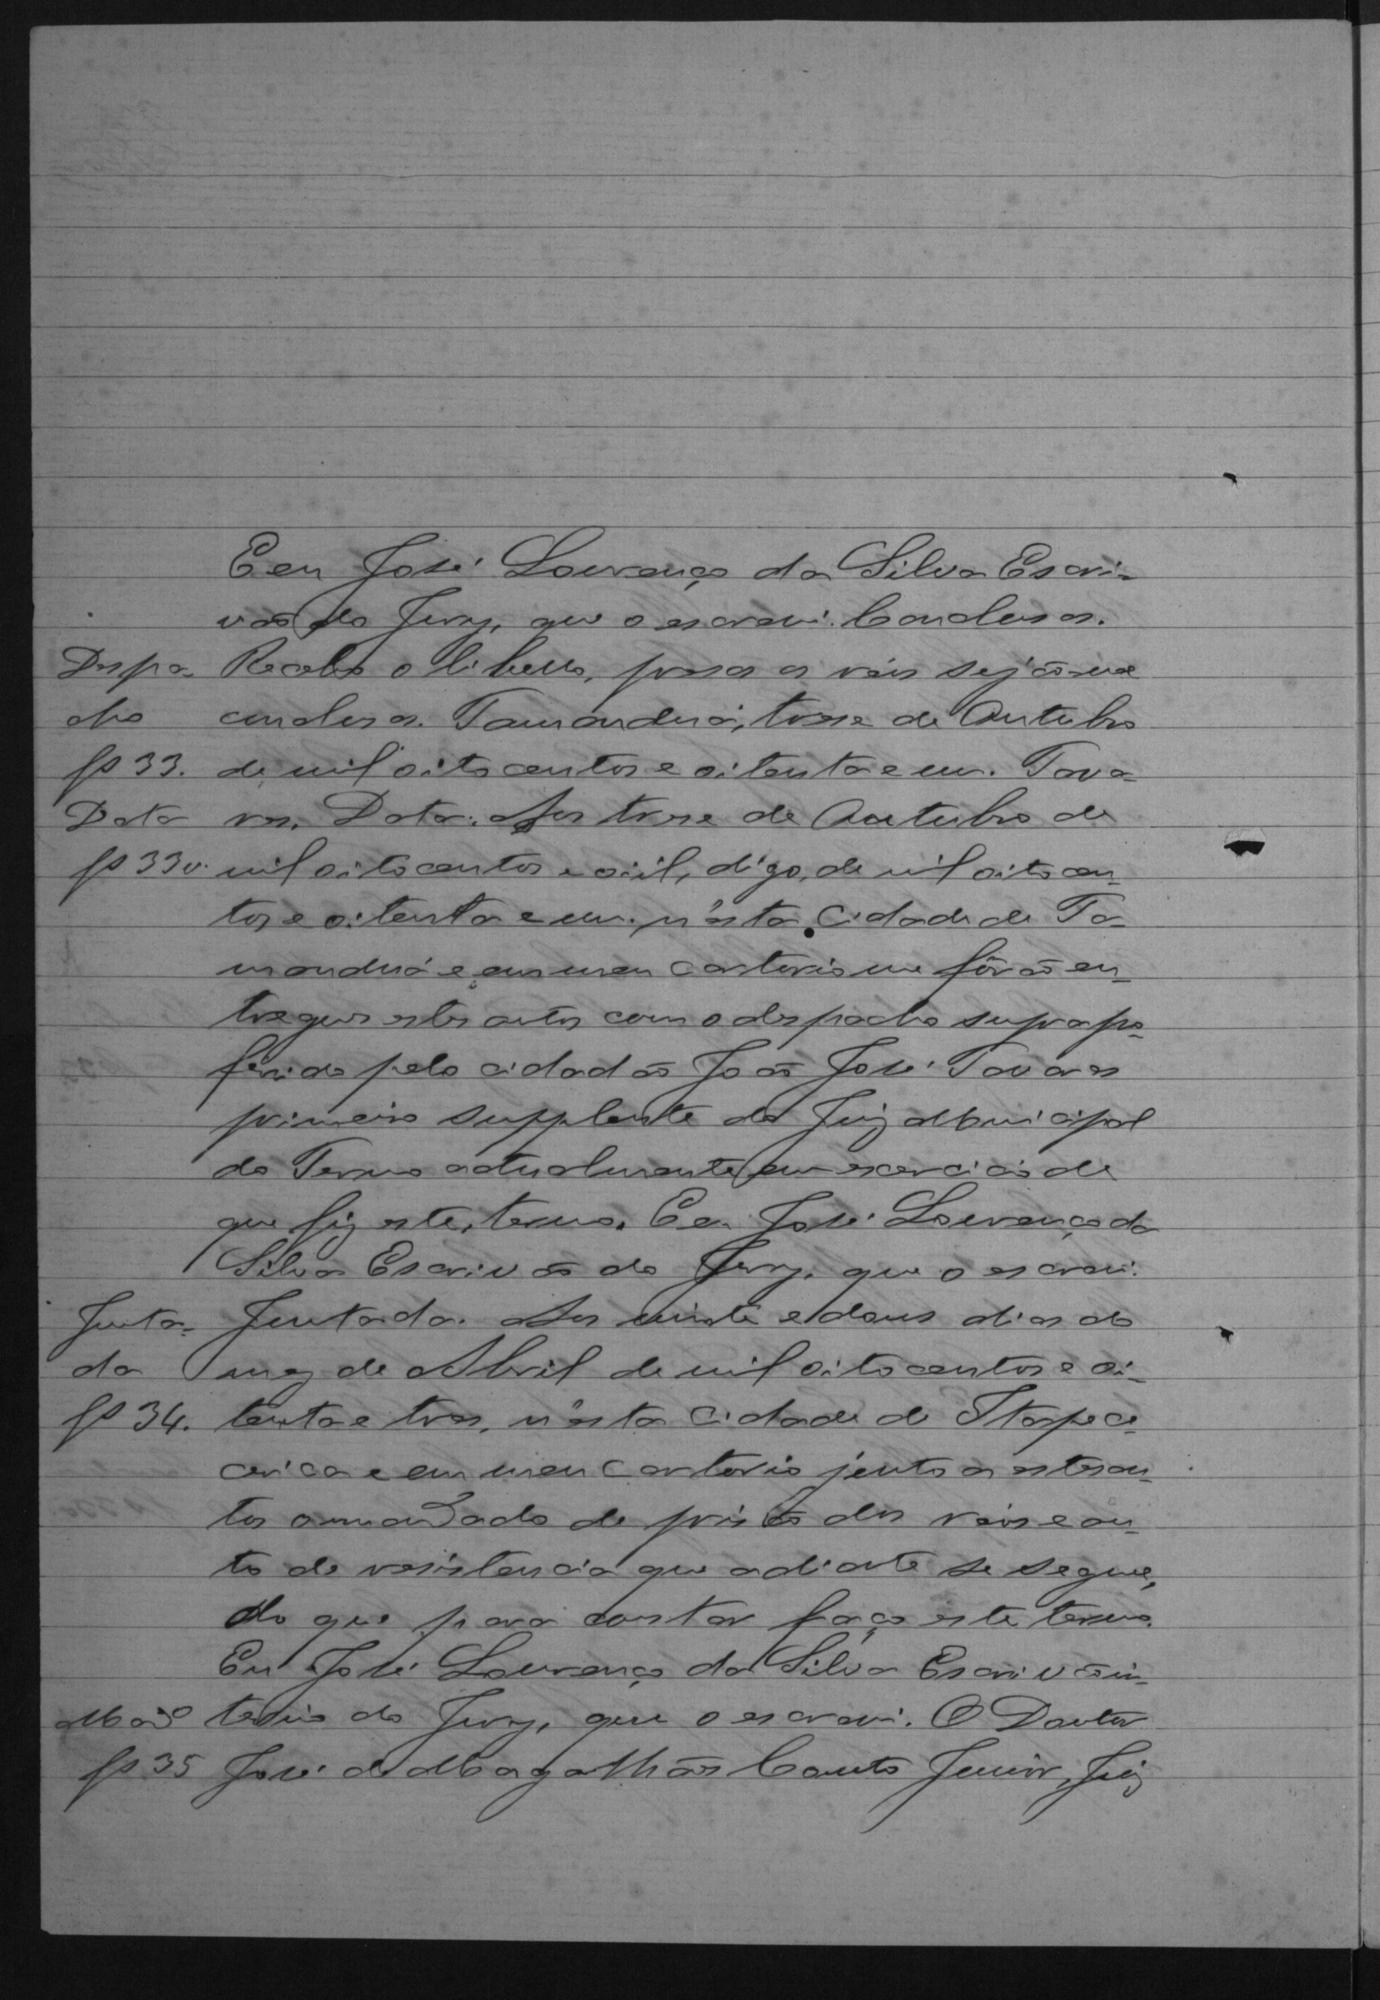 Eeu José Lourenço da Silva Escri-
vão do Jury, que o escrevi. Conclusos.
Despa- Recebo o libello, prosa os réos sejão me
cho conclusos. Tamanduá, treze de Outubro
fs 33. de mil oito centos e oitenta e um. Tava-
Data res. Data. Aos treze de Outubro de
fs 33v. mil oito centos e oiil, digo, de mil oito cen-
tos e oitenta e um. n'esta Cidade de Ta-
manduá e em meu cartorio me fôrão en-
tregues estes autos com o despacho supra pro-
ferido pelo cidadão João José Tavares
primeiro supplente do Juiz Municipal
do Termo actualmente em exercicio de
que fiz este termo. Eu José Lourenço da
Silva Escrivão do Jury, que o escrevi.
Junta- Juntada. Aos vinte e dous dias do
da mez de Abril de mil oito centos e oi-
fs 34. tenta e tres, n'esta Cidade de Itapece-
cerica e em meu cartorio junto a estes au-
tos o mandado de prisão dos réos e au-
to de resistencia que adiante se segue,
do que para constar faço este termo.
Eu José Lourenço da Silva Escrivão in-
Mão terino do Jury, que o escrevi. O Doutor
fs 35 José de Magalhães Couto Junior, Juiz